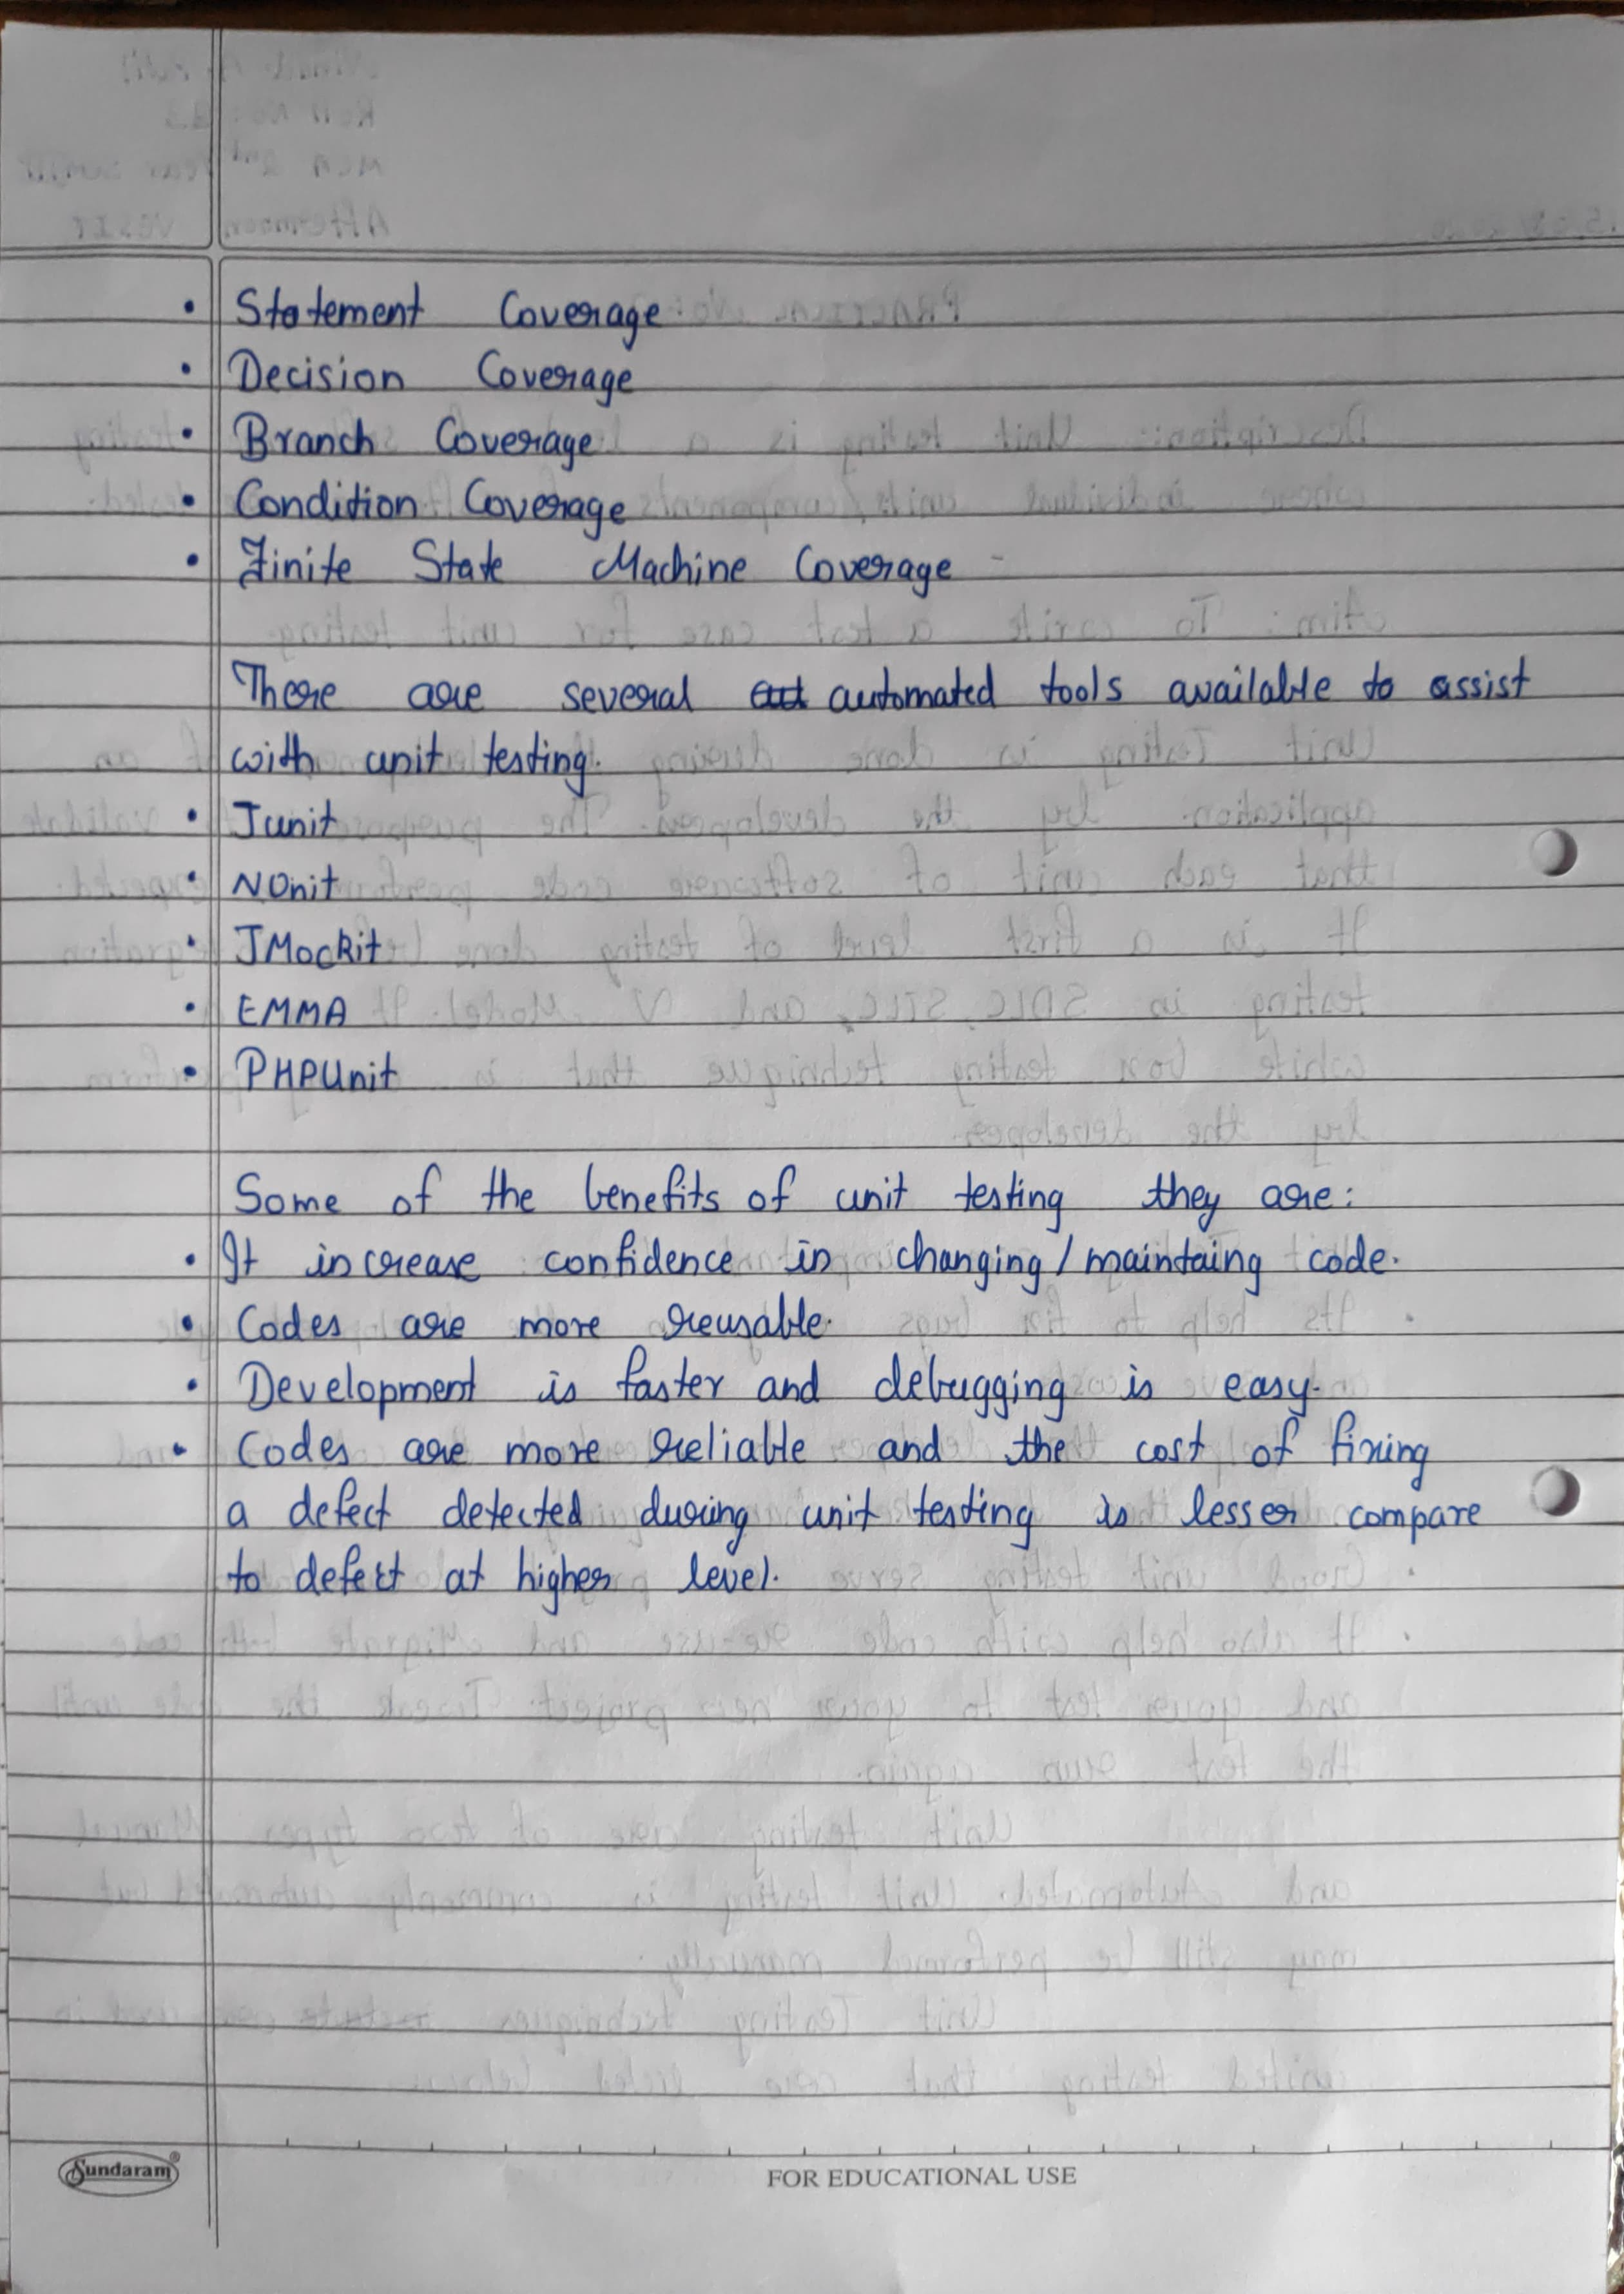 • Statement Coverage
• Decision Coverage
• Branch Coverage
• Condition Coverage
• Finite State Machine Coverage -
There are several automated tools available to assist
with unit testing.
• Junit
• NUnit
• JMockit
• EMMA
• PHPUnit
Some of the benefits of unit testing they are:
• It increase confidence in changing/maintaing code.
• Codes are more reusable.
• Development is faster and debugging is easy.
• Codes are more reliable and the cost of fixing
a defect detected during unit testing is lesser compare
to defect at higher level.
Sundaram®
FOR EDUCATIONAL USE